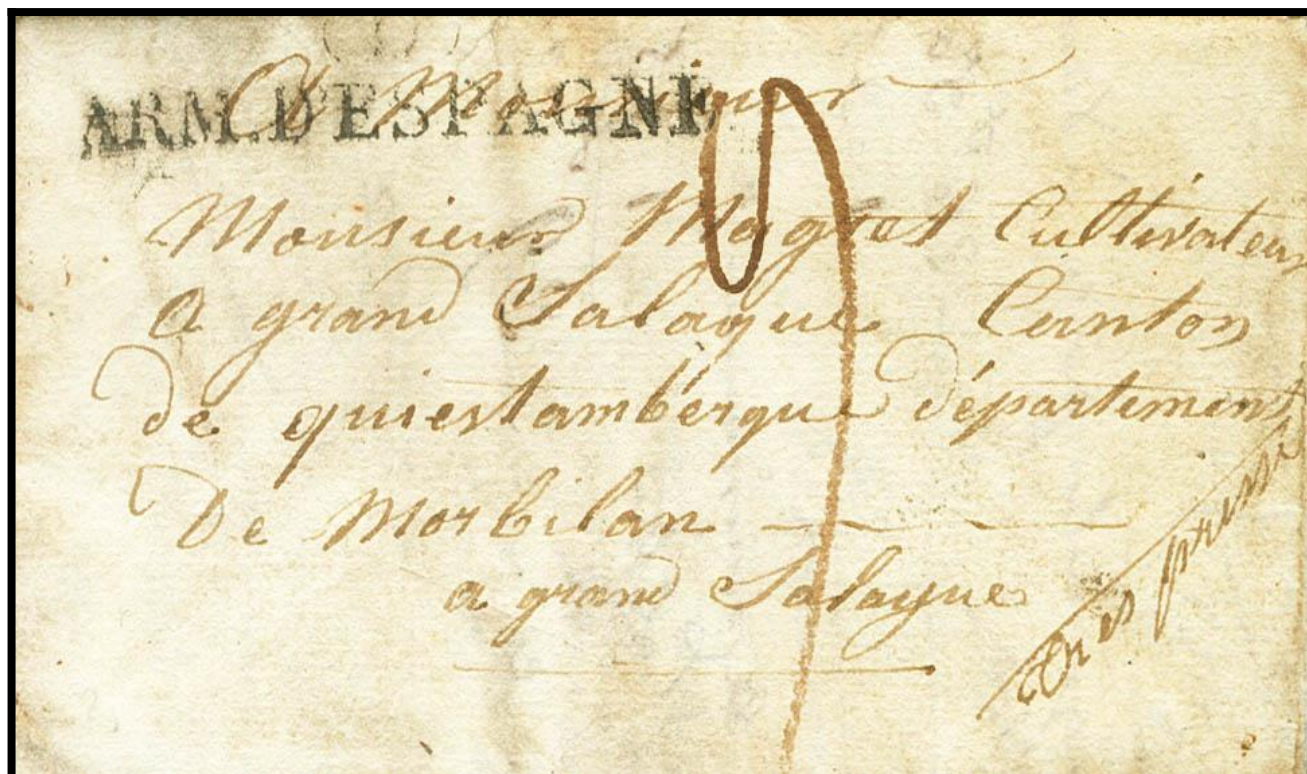 A Monsieur
ARM. D'ESPAGNE
Monsieur Magret Cultivateur
a grand Salague Canton
de quiestambergue département
De Morbilan
a grand Salague
très pressé